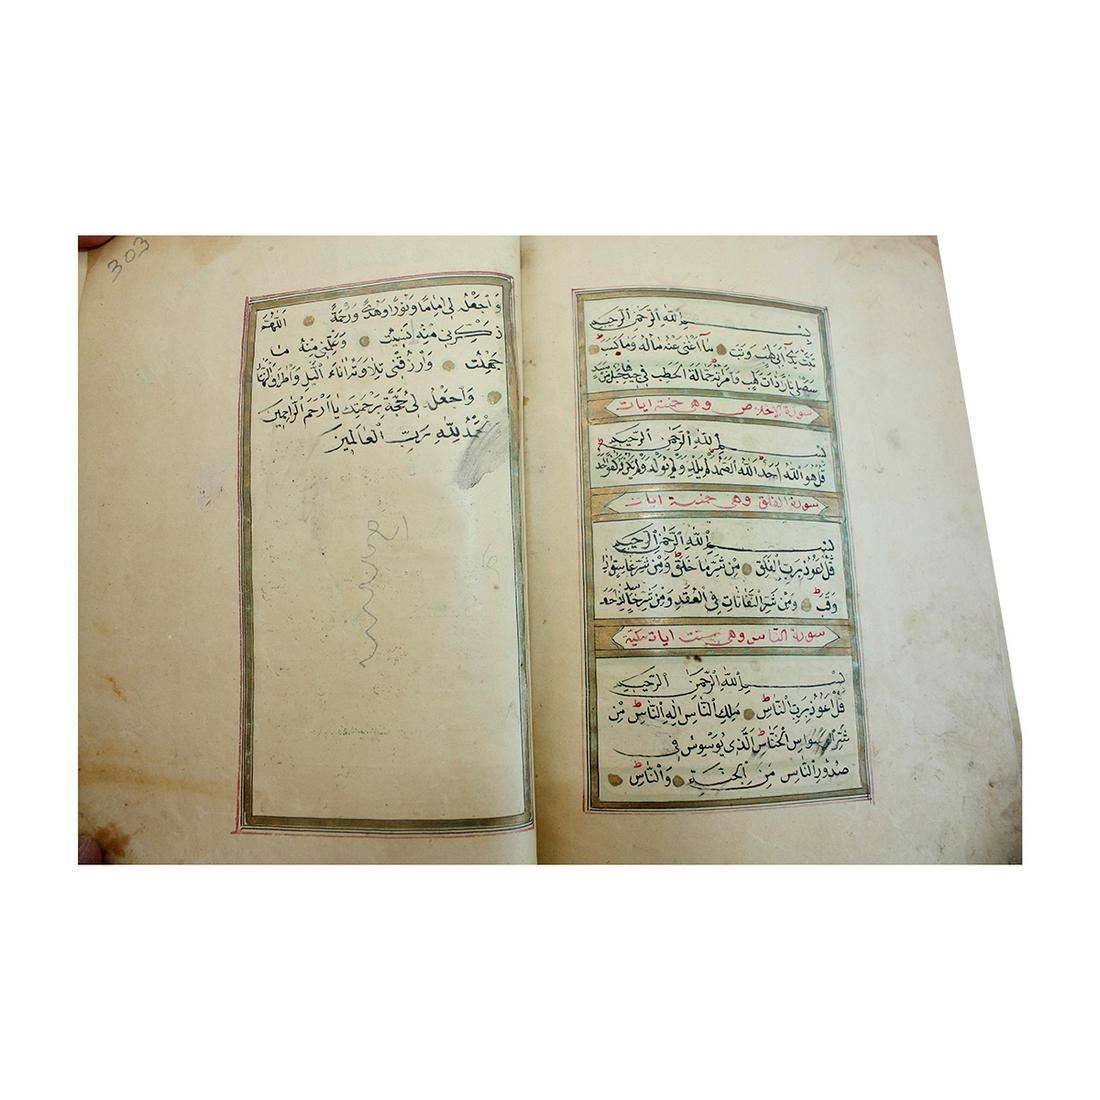 بِسْمِ اللّٰهِ الرَّحْمٰنِ الرَّحِيمِ
تَبَّتْ يَدَا اَبِي لَهَبٍ وَتَبَّ مَا اَغْنٰى عَنْهُ مَالُهُ وَمَا كَسَبَ
سَيَصْلٰى نَارًا ذَاتَ لَهَبٍ وَامْرَاَتُهُ حَمَّالَةَ الْحَطَبِ فِي جِيدِهَا حَبْلٌ مِنْ مَسَدٍ
سورة الاخلاص وهى خمسة ايات
بِسْمِ اللّٰهِ الرَّحْمٰنِ الرَّحِيمِ
قُلْ هُوَ اللّٰهُ اَحَدٌ اَللّٰهُ الصَّمَدُ لَمْ يَلِدْ وَلَمْ يُولَدْ وَلَمْ يَكُنْ لَهُ كُفُوًا اَحَدٌ
سورة الفلق وهى خمسة ايات
بِسْمِ اللّٰهِ الرَّحْمٰنِ الرَّحِيمِ
قُلْ اَعُوذُ بِرَبِّ الْفَلَقِ مِنْ شَرِّ مَا خَلَقَ وَمِنْ شَرِّ غَاسِقٍ اِذَا
وَقَبَ وَمِنْ شَرِّ النَّفَّاثَاتِ فِي الْعُقَدِ وَمِنْ شَرِّ حَاسِدٍ اِذَا حَسَدَ
سورة الناس وهى ست ايات مكية
بِسْمِ اللّٰهِ الرَّحْمٰنِ الرَّحِيمِ
قُلْ اَعُوذُ بِرَبِّ النَّاسِ مَلِكِ النَّاسِ اِلٰهِ النَّاسِ مِنْ
شَرِّ الْوَسْوَاسِ الْخَنَّاسِ الَّذِي يُوَسْوِسُ فِي
صُدُورِ النَّاسِ مِنَ الْجِنَّةِ وَالنَّاسِ
303
وَاجْعَلْهُ لِي اِمَامًا وَنُورًا وَهُدًى وَرَحْمَةً اَللّٰهُمَّ
ذَكِّرْنِي مِنْهُ مَا نَسِيتُ وَعَلِّمْنِي مِنْهُ مَا
جَهِلْتُ وَارْزُقْنِي تِلَاوَتَهُ اٰنَاءَ الَّيْلِ وَاَطْرَافَ النَّهَارِ
وَاجْعَلْهُ لِي حُجَّةً بِرَحْمَتِكَ يَا اَرْحَمَ الرَّاحِمِينَ
الْحَمْدُ لِلّٰهِ رَبِّ الْعَالَمِينَ